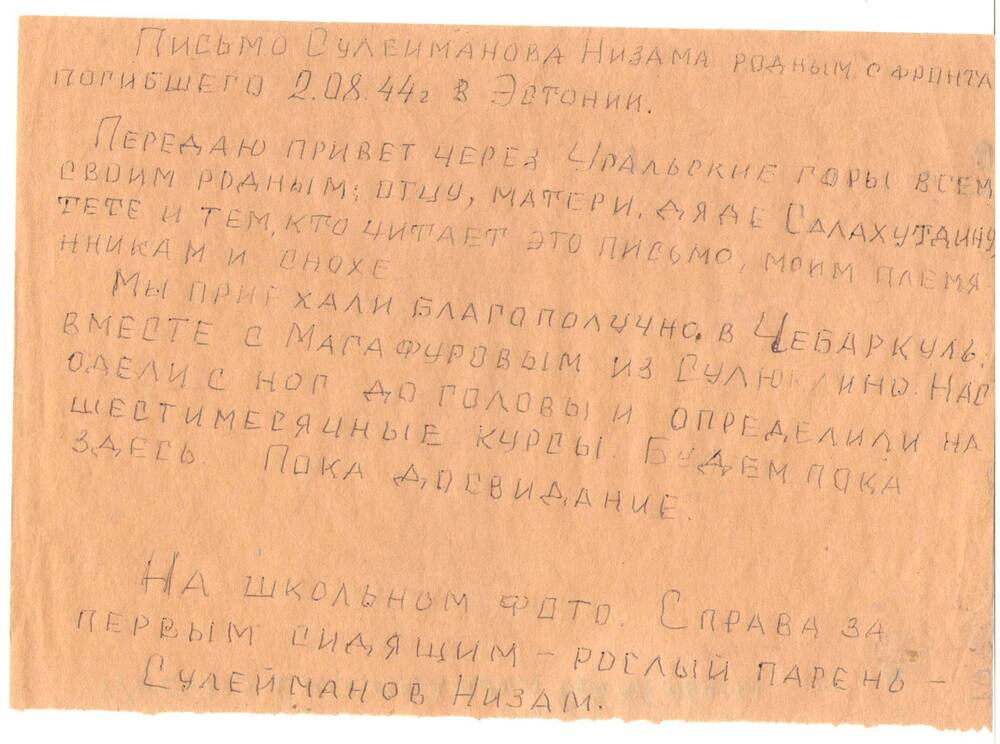 Письмо Сулейманова Низама родным с фронта
погибшего 2.08.44г в Эстонии.
Передаю привет через Уральские горы всем
своим родным; отцу, матери, дяде Салахутдину,
тете и тем, кто читает это письмо, моим племя
нникам и снохе
Мы приехали благополучно. в Чебаркуль.
вместе с Магафуровым из Сулюклино. Нас
одели с ног до головы и определили на
шестимесячные курсы. Будем пока
здесь. Пока досвидание.
На школьном фото. Справа за
первым сидящим – рослый парень –
Сулейманов Низам.